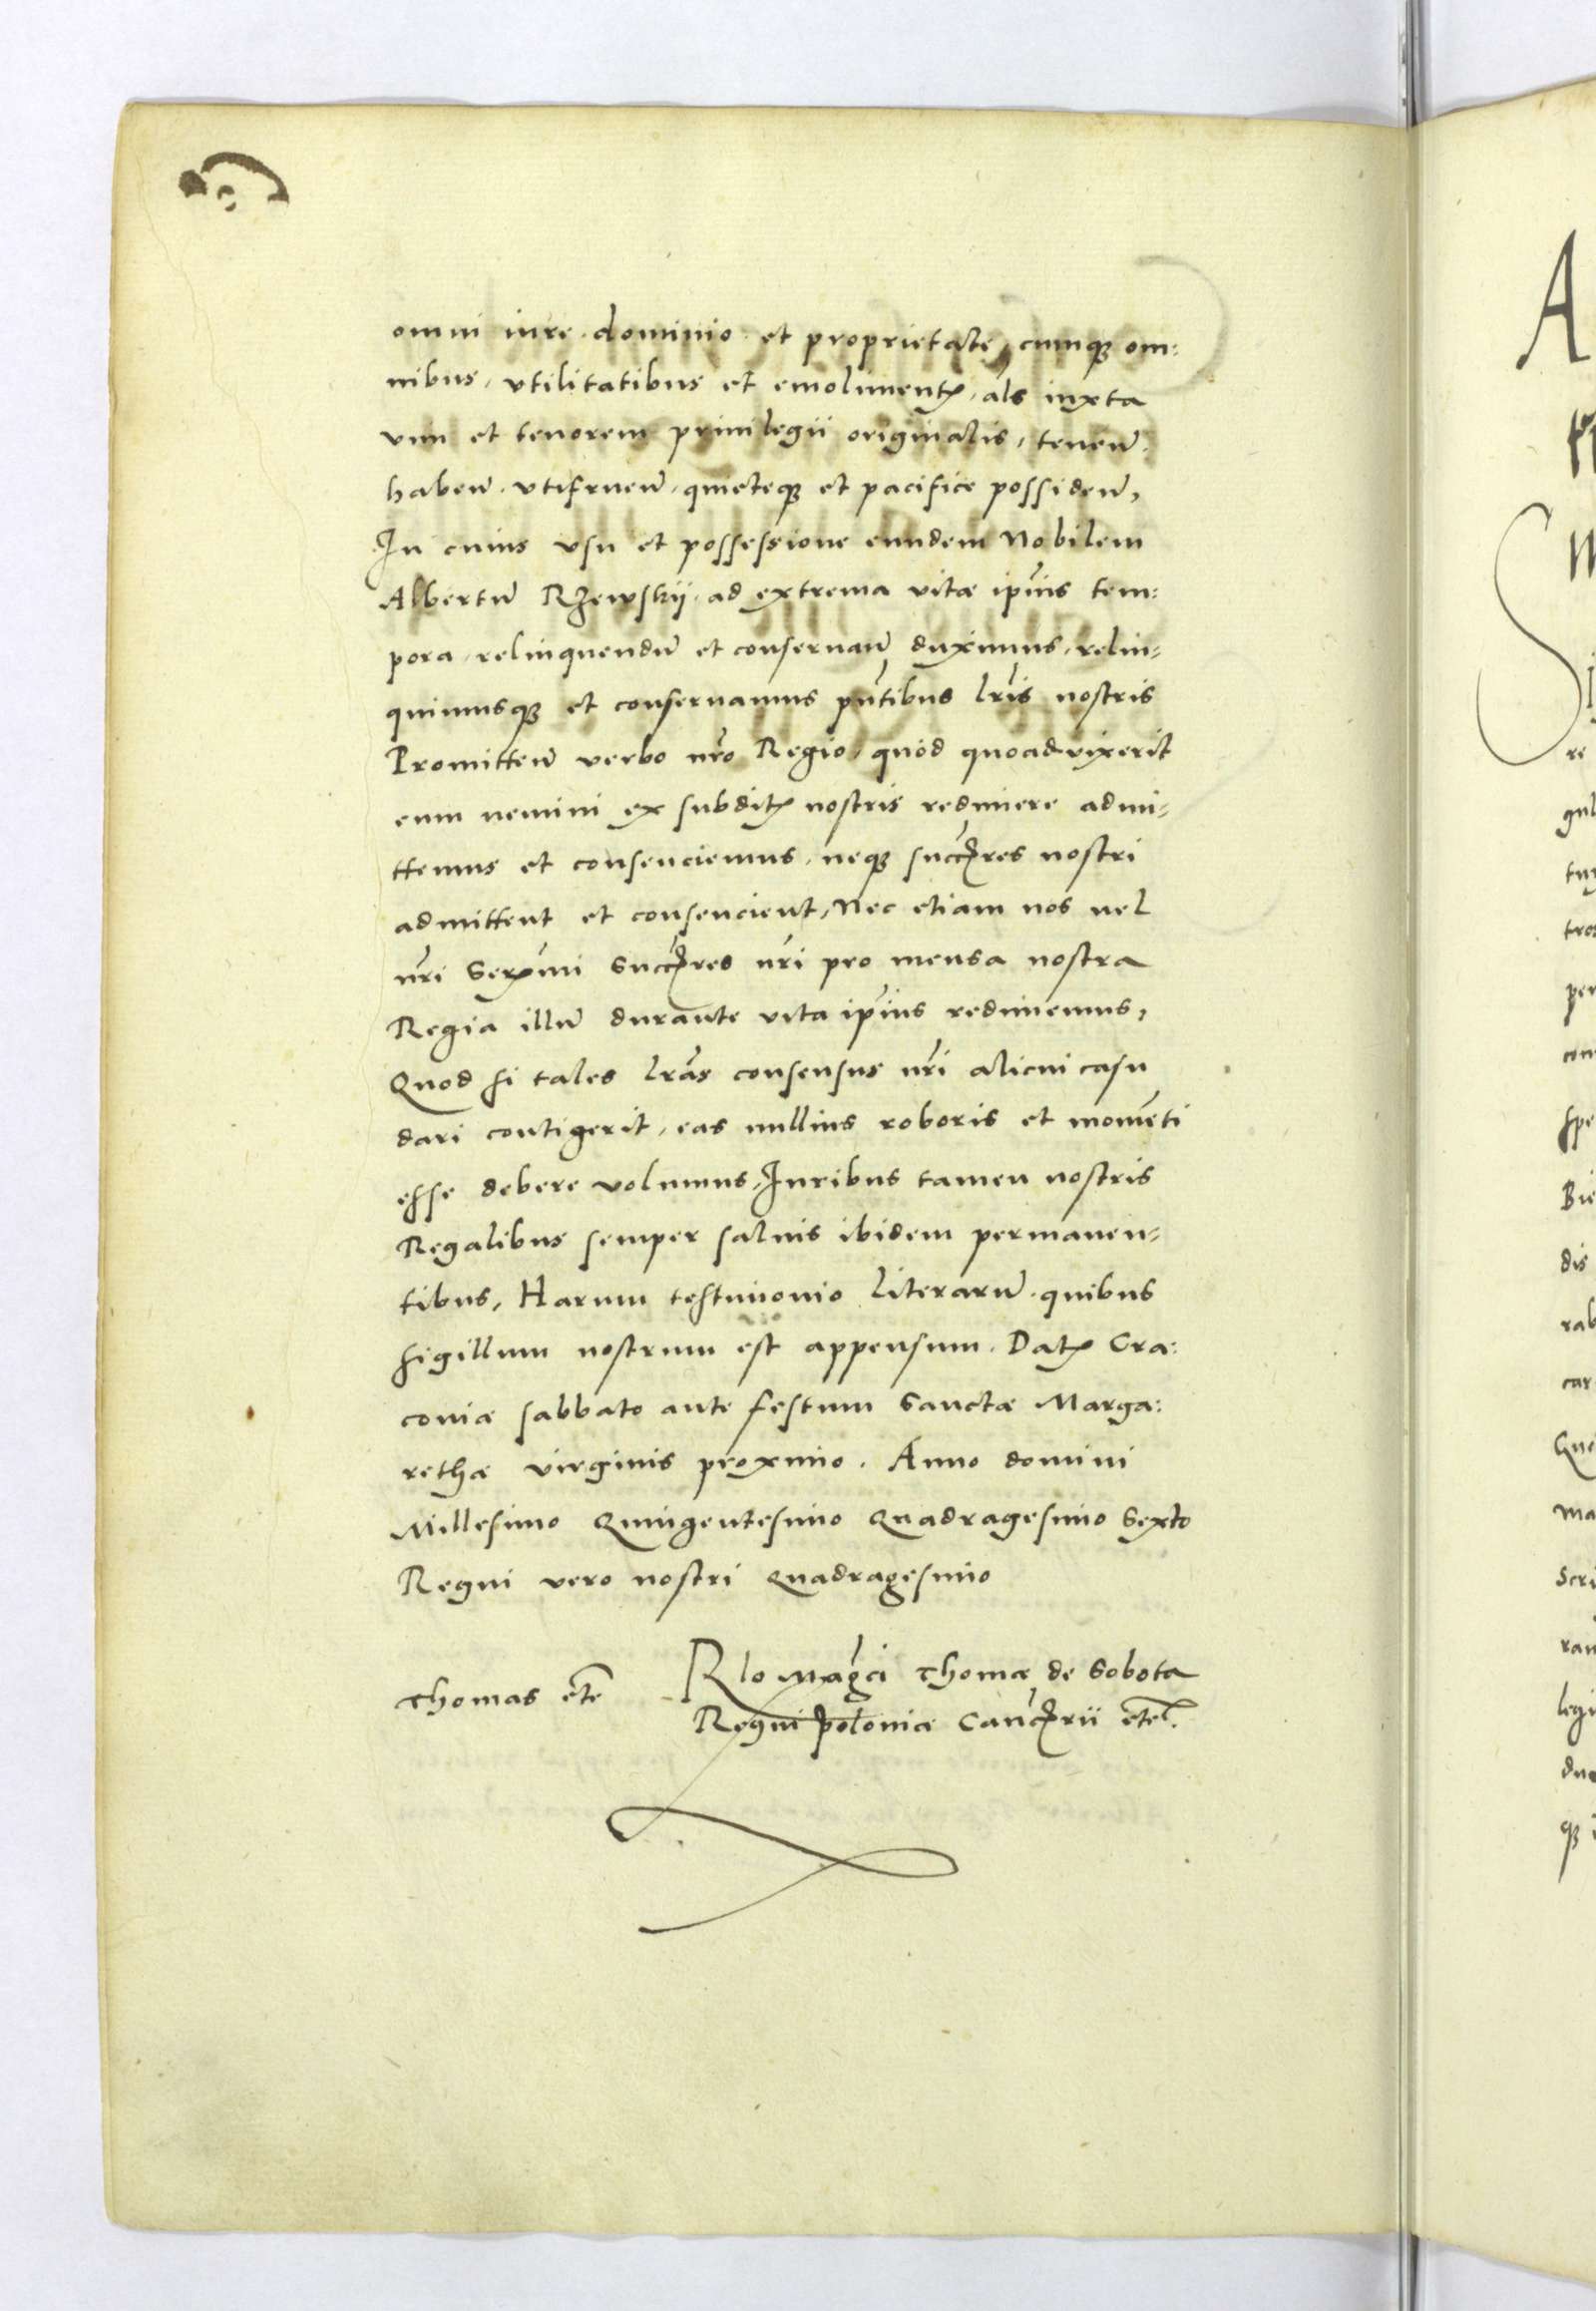 omni iure dominio et proprietate, cumq̨ om:
nibus, vtilitatibus et emolument̨, als iuxta
vim et tenorem priuilegii originalis, teneñ.
habeñ. vtifrueñ, quieteq̨ et pacifice possideñ,
In cuius vsu et possessione eundem Nobilem
Albertū Rzewskij, ad extrema vitæ ip̄ius tem:
pora, relinquendū et conseruañ duximus, relin=
quimusq̨ et conseruamus pn̄tibus lr̄is nostris
Promitteñ verbo nr̄o Regio, quòd quoad vixerit
eum nemini ex subdit̨ nostris redimere admi=
ttemus et consenciemus, neq̨ succ̄res nostri
admittent et consencient, Nec etiam nos uel
nr̄i Serx̄mi Succ̄res nr̄i pro mensa nostra
Regia illū durante vita ip̄ius redimemus,
Quod si tales lr̄as consensus nr̄i alicui casu
dari contigerit, eas nullius roboris et momēti
esse debere volumus, Iuribus tamen nostris
Regalibus semper saluis ibidem permanen=
tibus, Harum testimonio literarū. quibus
sigillum nostrum est appensum. Dat̨ Cra:
couiæ sabbato ante festum Sanctæ Marga:
rethæ virginis proximo. Anno domini
Millesimo Quingentesimo Quadragesimo Sexto
Regni vero nostri Quadragesimo
Thomas etc̄ Rlo Mag̃ci Thomæ de Sobota
Regni poloniæ Canc̄rii etc̄.